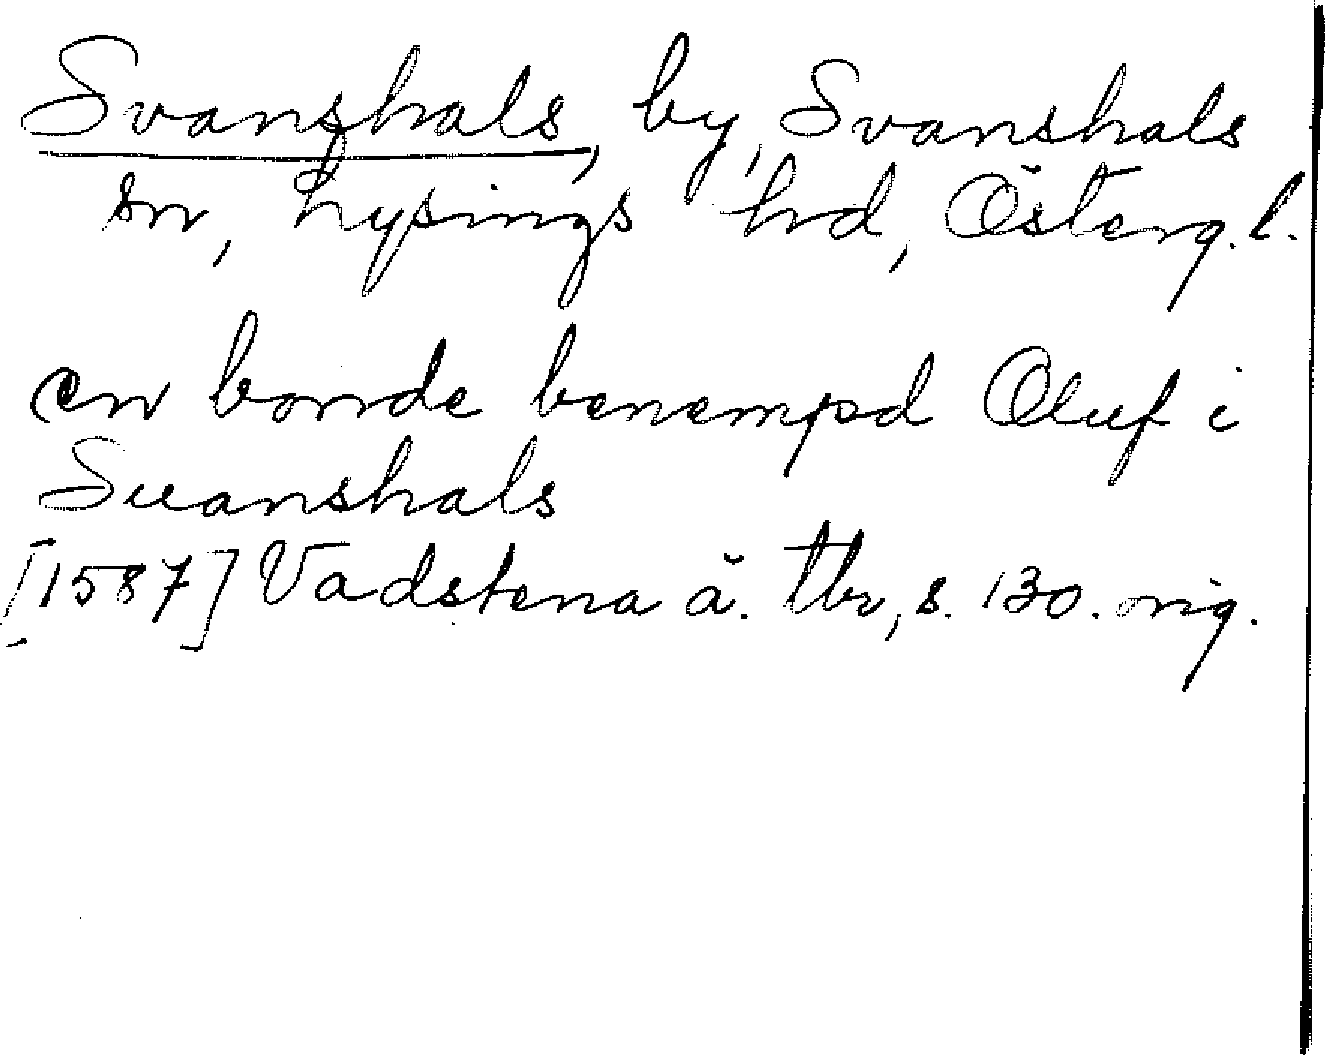 Svanshals, by, Svanshals
sn, Lysings hrd, Österg. l.
en bonde benempd Oluf i
Suanshals
[1587] Vadstena ä. tbr, s. 130. orig.